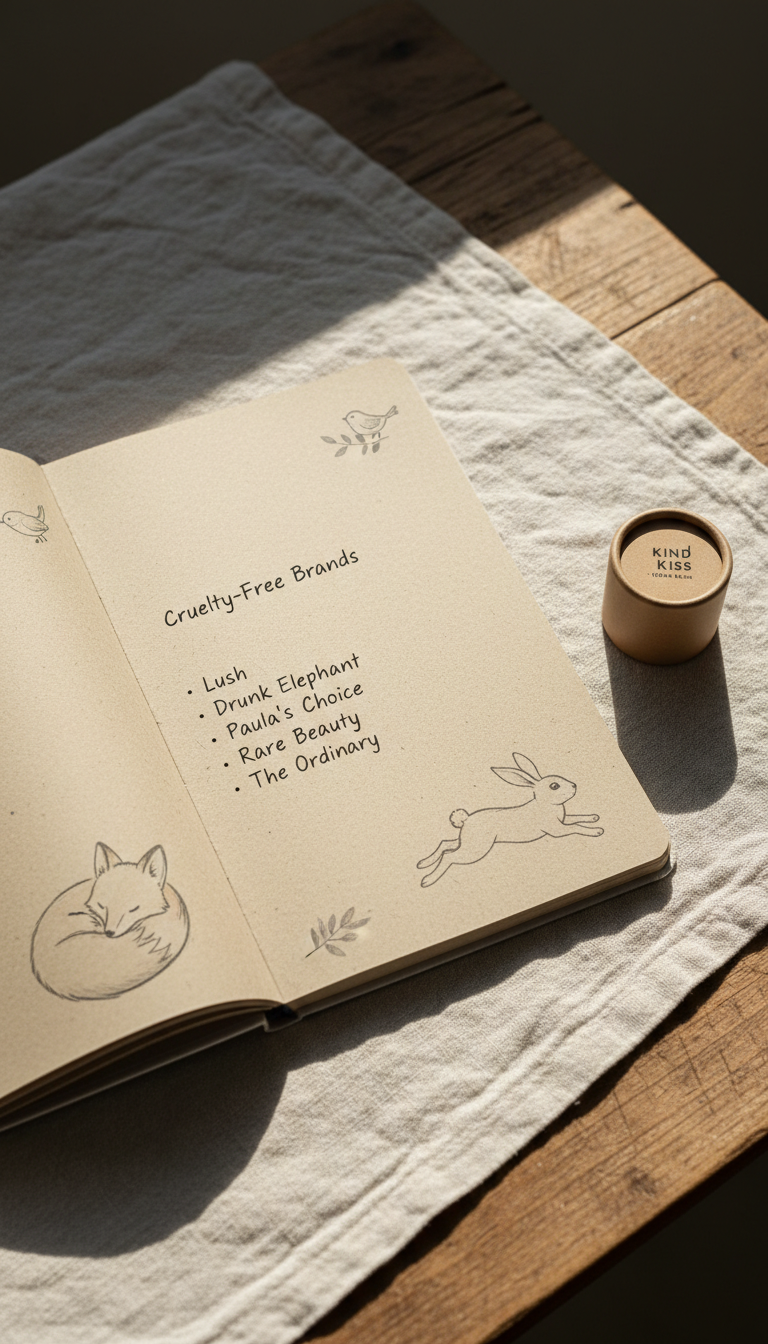 Cruelty-Free Brands
• Lush
• Drunk Elephant
• Paula's Choice
• Rare Beauty
• The Ordinary
KIND
KISS